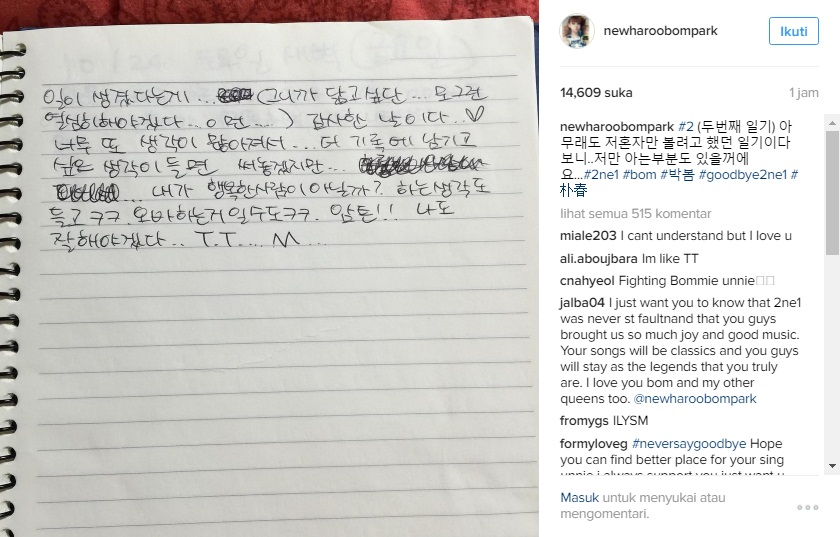 일이 생겼다는게... (그니까 닮고싶단... 또 그런
열심히해야겠다.. 이런....) 감사한 날이다..♡
너무 또 생각이 많아져서... 더 기록에 남기고
싶은 생각이 들면 써놓겠지만...
... 내가 행복한사람이 아닐까? 하는생각도
들고 ㅋㅋ 오바하는거일수도ㅋㅋ. 암튼!! 나도
잘해야겠다.. T.T....
newharoobompark
Ikuti
14,609 suka
1 jam
newharoobompark #2 (두번째 일기) 아
무래도 저혼자만 볼려고 했던 일기이다
보니..저만 아는부분도 있을꺼에
요...#2ne1 #bom #박봄 #goodbye2ne1 #
朴春
lihat semua 515 komentar
miale203 I cant understand but I love u
ali.aboujbara Im like TT
cnahyeol Fighting Bommie unnie
jalba04 I just want you to know that 2ne1
was never st faultnand that you guys
brought us so much joy and good music.
Your songs will be classics and you guys
will stay as the legends that you truly
are. I love you bom and my other
queens too. @newharoobompark
fromygs ILYSM
formyloveg #neversaygoodbye Hope
you can find better place for your sing
unnie i always support you just want u
Masuk untuk menyukai atau
mengomentari.